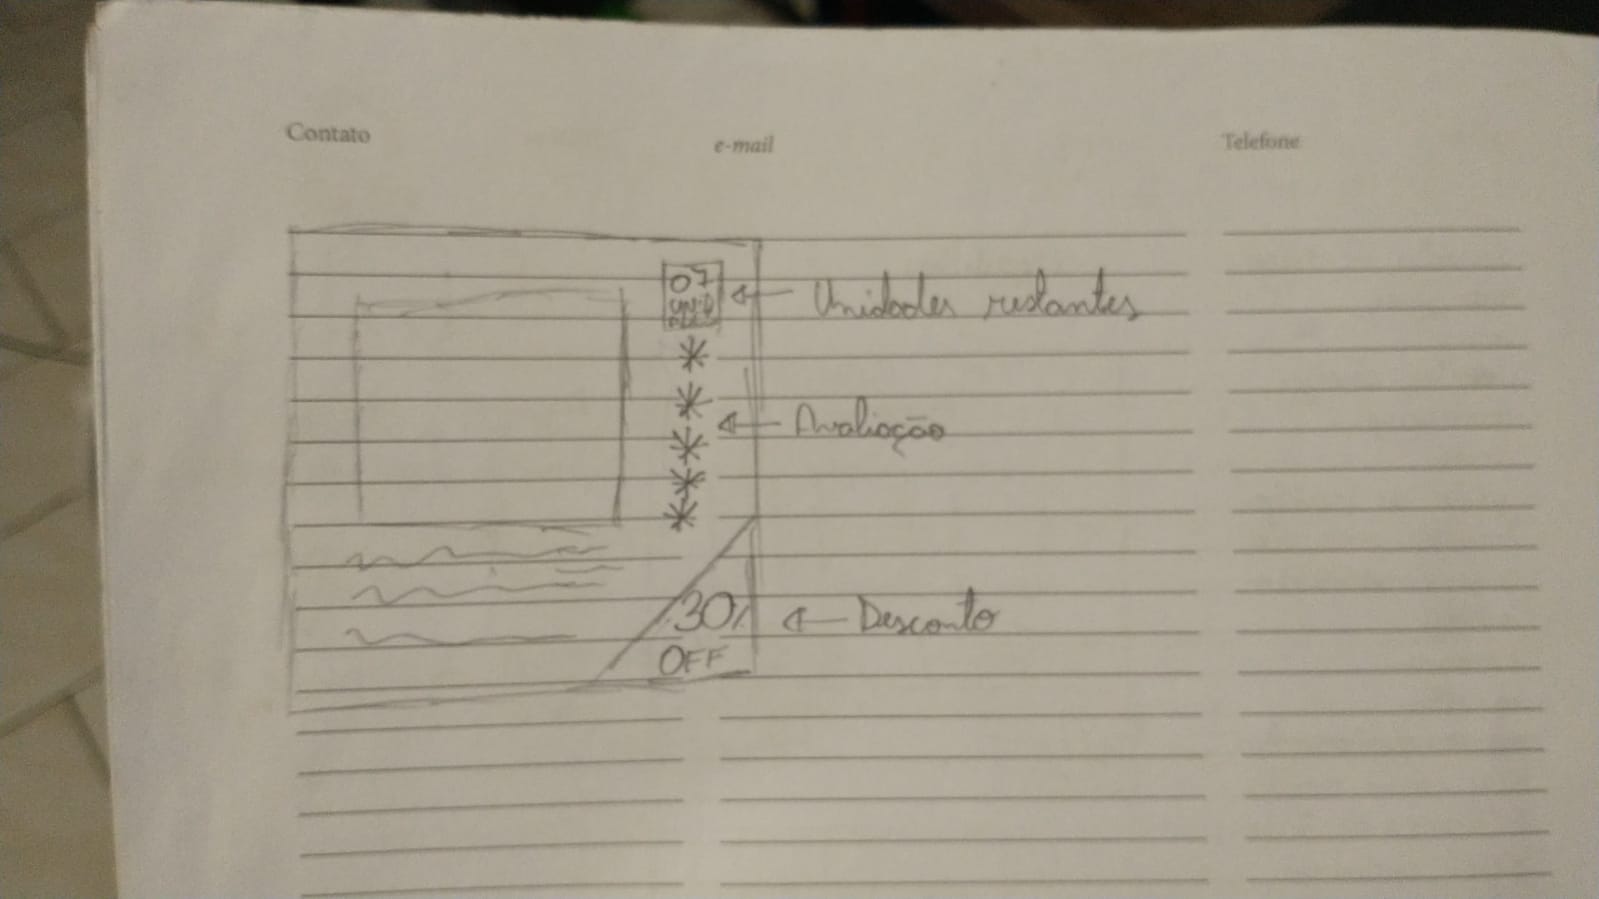 Contato e-mail Telefone
07
UNID
Unidades restantes
Avaliação
30%
OFF
Desconto